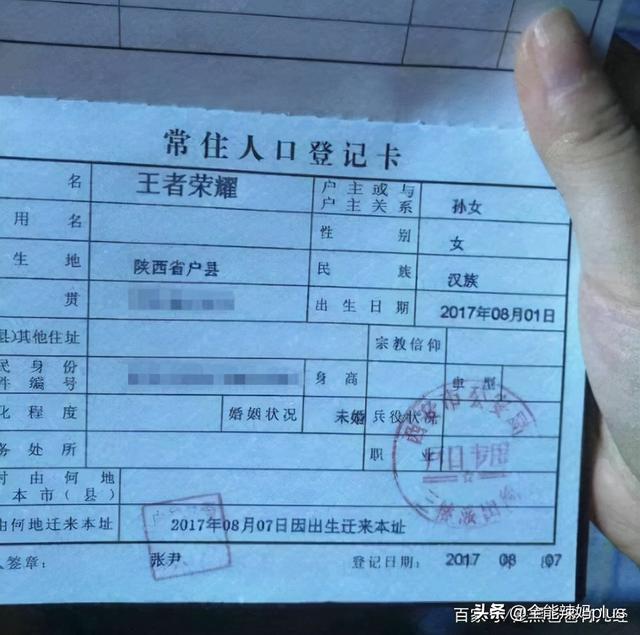 常住人口登记卡
名 王者荣耀 户主或与户主关系 孙女
用名 性别 女
生地 陕西省户县 民族 汉族
贯 出生日期 2017年08月01日
县)其他住址 宗教信仰
民身份
件编号 身高 血型
化程度 婚姻状况 未婚 兵役状况
务处所 职业
时由何地
本市(县)
由何地迁来本址 2017年08月07日因出生迁来本址
人签章： 张尹 登记日期： 2017 08 07
头条 @全能辣妈plus